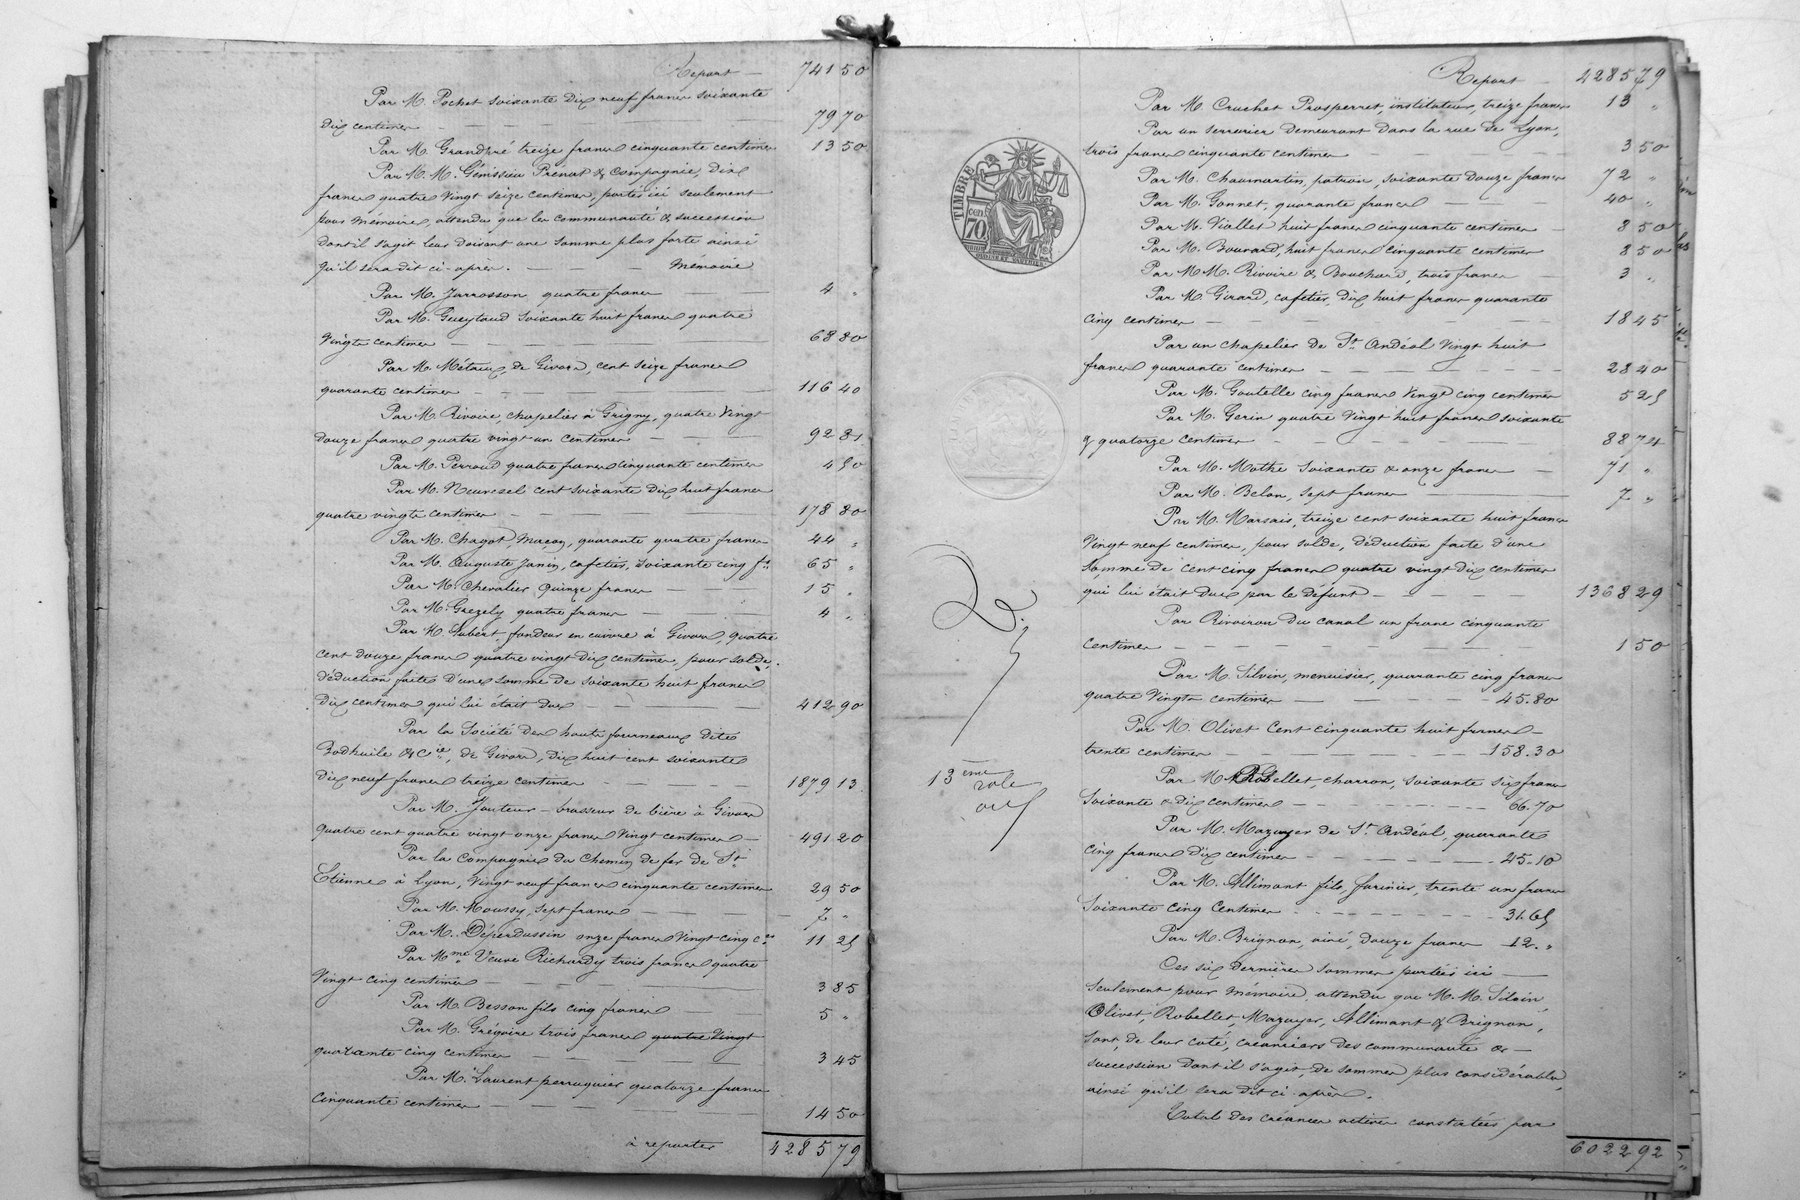 Report — 741 50
Par M. Pochet soixante dix neuf francs soixante
dix centimes — 79 70
Par M. Grandpré treize francs cinquante centimes 13 50
Par M. M. Gémissieu Prénat & Compagnie, dix
francs quatre vingt seize centimes, portés ici seulement
pour mémoire, attendu que la communauté & succession
dont il s'agit leur doivent une somme plus forte ainsi
qu'il sera dit ci-après. — mémoire
Par M. Jarrosson quatre francs — 4 "
Par M. Gueytaud soixante huit francs quatre
vingts centimes — 68 80
Par M. Métreux, de Givors, cent seize francs
quarante centimes — 116 40
Par M. Rivoire, chapelier à Grigny, quatre vingt
douze francs quatre vingt un centimes — 92 81
Par M. Perroud quatre francs cinquante centimes 4 50
Par M. Neuvesel cent soixante dix huit francs
quatre vingts centimes — 178 80
Par M. Chagot, maçon, quarante quatre francs 44 "
Par M. Auguste Janin, cafetier, soixante cinq fs 65 "
Par M. Chevalier quinze francs — 15 "
Par M. Grezely quatre francs — 4 "
Par M. Aubert, fondeur en cuivre à Givors, quatre
cent douze francs quatre vingt dix centimes, pour solde,
déduction faite d'une somme de soixante huit francs
dix centimes qui lui était due — 412 90
Par la Société des hauts fourneaux dite
Bodhuile & Cie, de Givors, dix huit cent soixante
dix neuf francs treize centimes — 1879 13
Par M. Jauteur — brasseur de bière à Givors
quatre cent quatre vingt onze francs vingt centimes — 491 20
Par la compagnie du chemin de fer de St
Etienne à Lyon, vingt neuf francs cinquante centimes 29 50
Par M. Moussy, sept francs — 7 "
Par M. Déperdussin onze francs vingt cinq ces 11 25
Par Mme Veuve Richardy trois francs quatre
vingt cinq centimes — 3 85
Par M. Besson fils cinq francs — 5 "
Par M. Grégoire trois francs quatre vingt
quarante cinq centimes — 3 45
Par M. Laurent perruquier quatorze francs
cinquante centimes — 14 50
à reporter 4285 79
TIMBRE
cen
70
13ème
rôle
Report — 4285 79
Par M. Cruchet Prosperret, instituteur, treize francs 13 "
Par un serrurier demeurant dans la rue de Lyon,
trois francs cinquante centimes — 3 50
Par M. Chaumartin, patron, soixante douze francs 72 "
Par M. Gonnet, quarante francs — 40 "
Par M. Viollet huit francs cinquante centimes — 8 50
Par M. Bouvard, huit francs cinquante centimes 8 50
Par M M. Rivoire & Bouchard, trois francs — 3 "
Par M. Girard, cafetier, dix huit francs quarante
cinq centimes — 18 45
Par un chapelier de St Andéol vingt huit
francs quarante centimes — 28 40
Par M. Goutelle cinq francs vingt cinq centimes 5 25
Par M. Gerin quatre vingt huit francs soixante
& quatorze centimes — 88 74
Par M. Mathe soixante & onze francs — 71 "
Par M. Belon, sept francs — 7 "
Par M. Marsais, treize cent soixante huit francs
vingt neuf centimes, pour solde, déduction faite d'une
somme de cent cinq francs quatre vingt dix centimes
qui lui était due par le défunt — 1368 29
Par Rivoiron du canal un franc cinquante
centimes — 1 50
Par M. Silvin, menuisier, quarante cinq francs
quatre vingts centimes — 45.80
Par M. Olivet cent cinquante huit francs —
trente centimes — 158.30
Par M. Robellet, charron, soixante six francs
soixante & dix centimes — 66.70
Par M. Mazuyer de St Andéol, quarante
cinq francs dix centimes — 45.10
Par M. Allimant fils, farinier, trente un francs
soixante cinq centimes — 31.65
Par M. Brignon, ainé, douze francs 12."
Ces six dernières sommes portées ici —
seulement pour mémoire, attendu que M. M. Silvin
Olivet, Robellet, Mazuyer, Allimant & Brignon,
sont, de leur coté, créanciers des communauté & —
succession dont il s'agit, de sommes plus considérables
ainsi qu'il sera dit ci-après.
Total des créances actives constatées par
6022 92